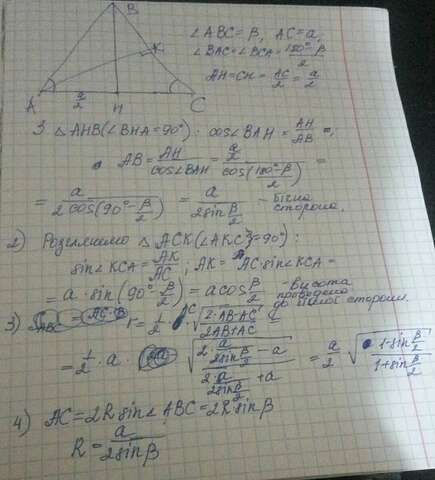 B
K
A
a/2
H
C
∠ABC = β, AC = a,
∠BAC = ∠BCA = (180° - β)/2
AH = CH = AC/2 = a/2
З △AHB (∠BHA = 90°): cos∠BAH = AH/AB =;
AB = AH/cos∠BAH = (a/2)/cos((180° - β)/2) =
= a/(2cos(90° - β/2)) = a/(2sin β/2) - бічна сторона.
2) Розглянемо △ACK (∠AKC = 90°):
sin∠KCA = AK/AC; AK = AC·sin∠KCA =
= a·sin(90° - β/2) = a cos β/2 - висота проведена до бічної сторони.
3)
r = 1/2 AC·√((2·AB - AC)/(2AB + AC)) =
= 1/2 · a · √((2·a/(2sin β/2) - a)/(2·a/(2sin β/2) + a)) = a/2 √((1 - sin β/2)/(1 + sin β/2))
4) AC = 2R sin∠ABC = 2R·sinβ
R = a/(2sinβ)